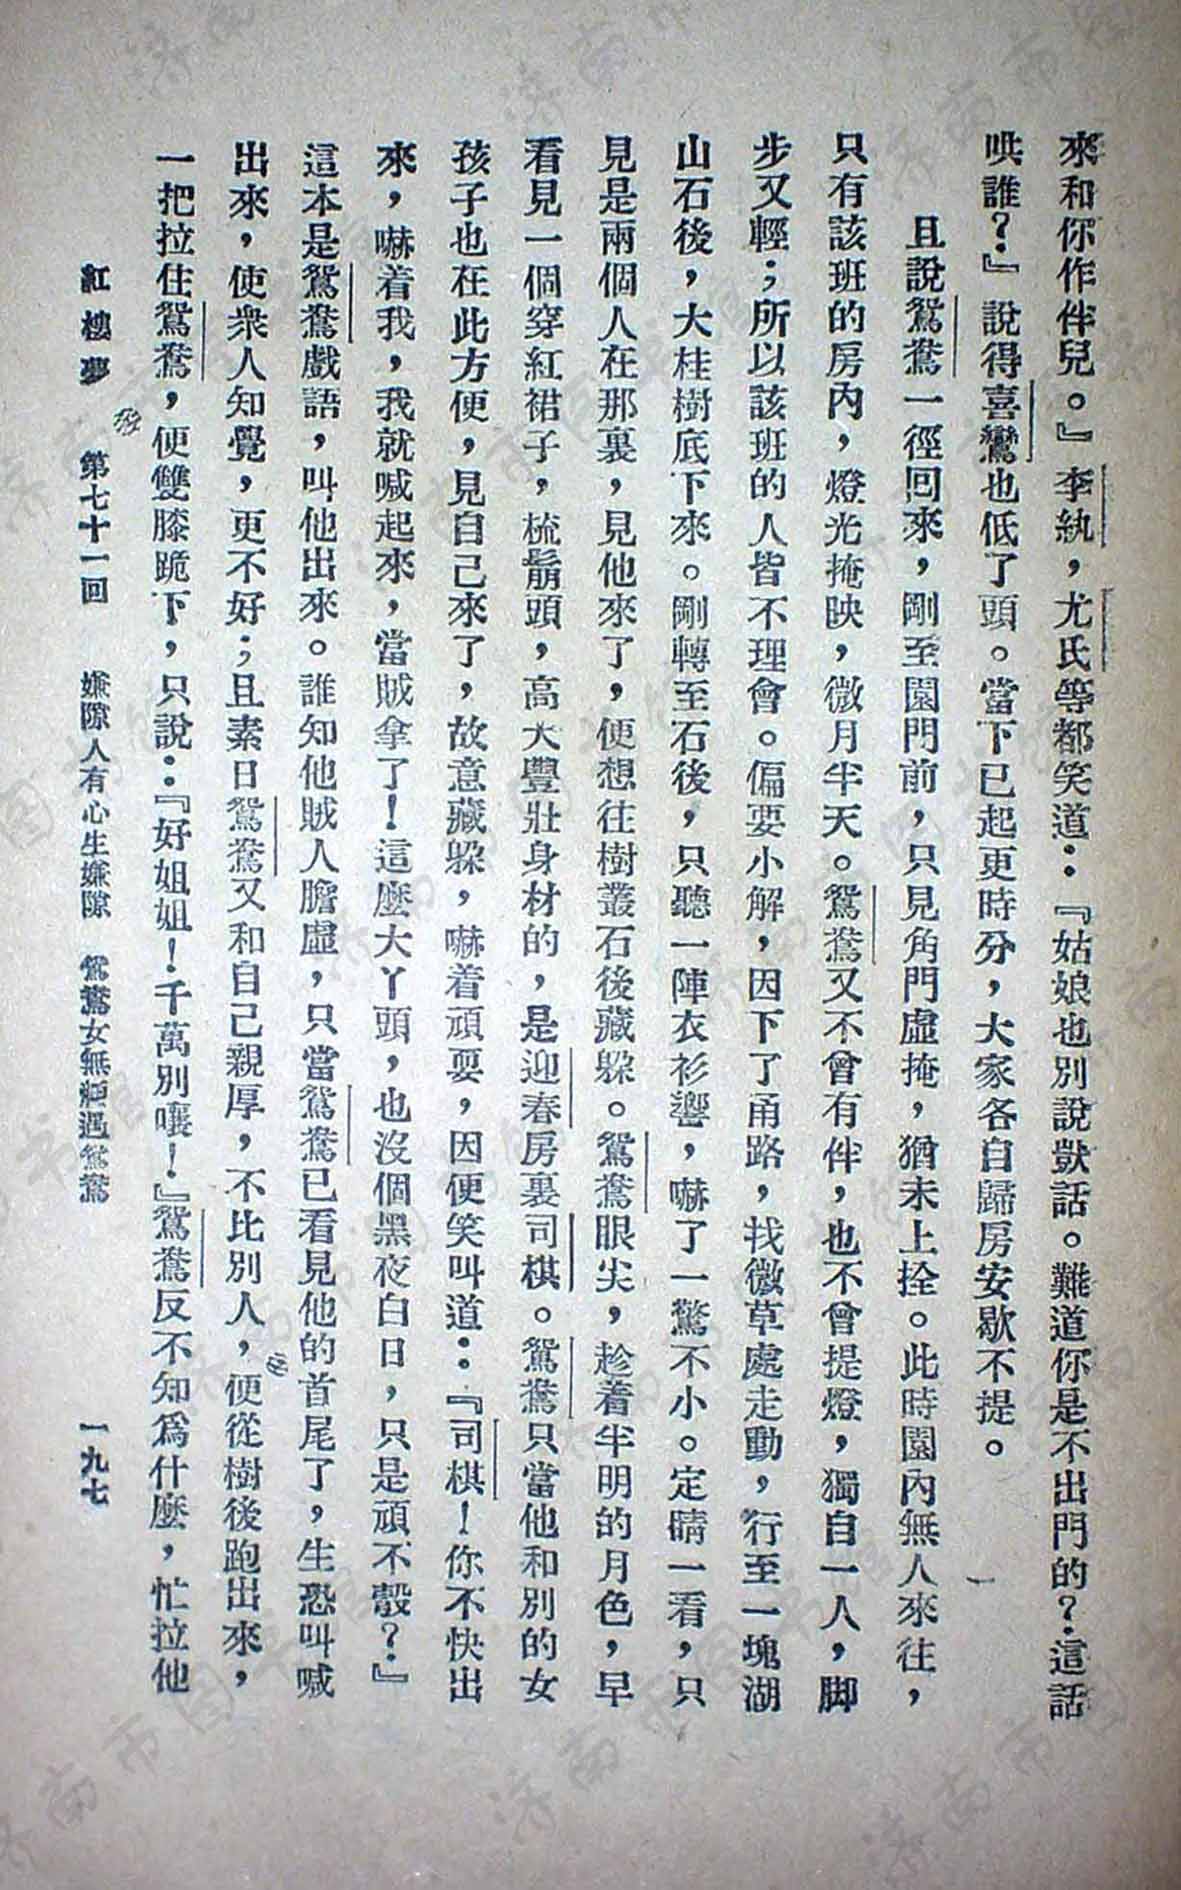 來和你作伴兒。』李紈，尤氏等都笑道：『姑娘也別說獃話。難道你是不出門的？這話
哄誰？』說得喜鸞也低了頭。當下已起更時分，大家各自歸房安歇不提。
且說鴛鴦一徑回來，剛至園門前，只見角門虛掩，猶未上拴。此時園內無人來往，
只有該班的房內，燈光掩映，微月半天。鴛鴦又不曾有伴，也不曾提燈，獨自一人，脚
步又輕；所以該班的人皆不理會。偏要小解，因下了甬路，找微草處走動，行至一塊湖
山石後，大桂樹底下來。剛轉至石後，只聽一陣衣衫響，嚇了一驚不小。定睛一看，只
見是兩個人在那裏，見他來了，便想往樹叢石後藏躱。鴛鴦眼尖，趁着半明的月色，早
看見一個穿紅裙子，梳鬅頭，高大豐壯身材的，是迎春房裏司棋。鴛鴦只當他和別的女
孩子也在此方便，見自己來了，故意藏躱，嚇着頑耍，因便笑叫道：『司棋！你不快出
來，嚇着我，我就喊起來，當賊拿了！這麼大丫頭，也沒個黑夜白日，只是頑不彀？』
這本是鴛鴦戲語，叫他出來。誰知他賊人膽虛，只當鴛鴦已看見他的首尾了，生恐叫喊
出來，使衆人知覺，更不好；且素日鴛鴦又和自己親厚，不比別人，便從樹後跑出來，
一把拉住鴛鴦，便雙膝跪下，只說：『好姐姐！千萬別嚷！』鴛鴦反不知爲什麼，忙拉他
紅樓夢　第七十一回　嫌隙人有心生嫌隙　鴛鴦女無意遇鴛鴦　一九七